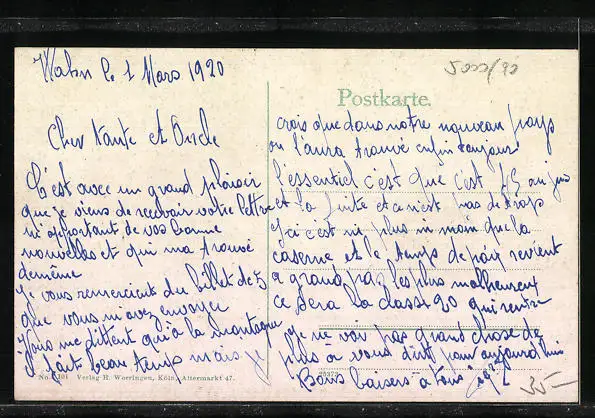 Wahn le 1 Mars 1920
5000/90
Postkarte.
Cher tante et Oncle
C'est avec un grand plaisir
que je viens de recevoir votre lettre
m'apportant de vos bonne
nouvelles et qui ma trouvé
demême
je vous remerciant du billet de 5
que vous m'avez envoyer
Vous me dittent qu'à la montagne
il fait beau temps mais je
crois que dans notre nouveau pays
on l'aura trouvé enfin toujours
l'essentiel c'est que c'est 45 au jus
et la fuite et ce n'est pas de trop
Ici c'est ni plus ni moin que la
caserne et le temps de paix revient
a grand pas les plus malheureux
ce sera la classe 20 qui rentre
Je ne voir pas grand chose de
plus a vous dire pour aujourd'hui
Bons baisers a tous
No. 101 Verlag H. Worringen, Köln, Altermarkt 47.
35-